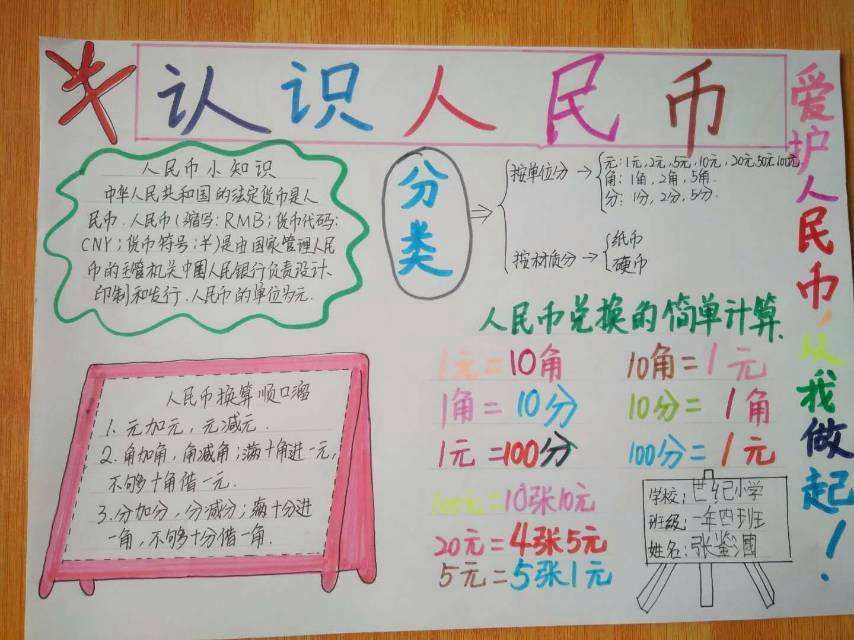 认识人民币
爱护人民币，从我做起！
人民币小知识
中华人民共和国的法定货币是人
民币.人民币(缩写:RMB;货币代码:
CNY;货币符号:¥)是由国家管理人民
币的主管机关中国人民银行负责设计、
印制和发行.人民币的单位为元.
分类
按单位分→
元:1元,2元,5元,10元,20元50元100元
角:1角,2角,5角.
分:1分,2分,5分.
按材质分→
纸币
硬币
人民币兑换的简单计算.
1元=10角
10角=1元
1角=10分
10分=1角
1元=100分
100分=1元
100元=10张10元
20元=4张5元
5元=5张1元
人民币换算顺口溜
1.元加元,元减元.
2.角加角,角减角;满十角进一元,
不够十角借一元.
3.分加分,分减分;满十分进
一角,不够十分借一角.
学校:世纪小学
班级:一年四班
姓名:张鉴